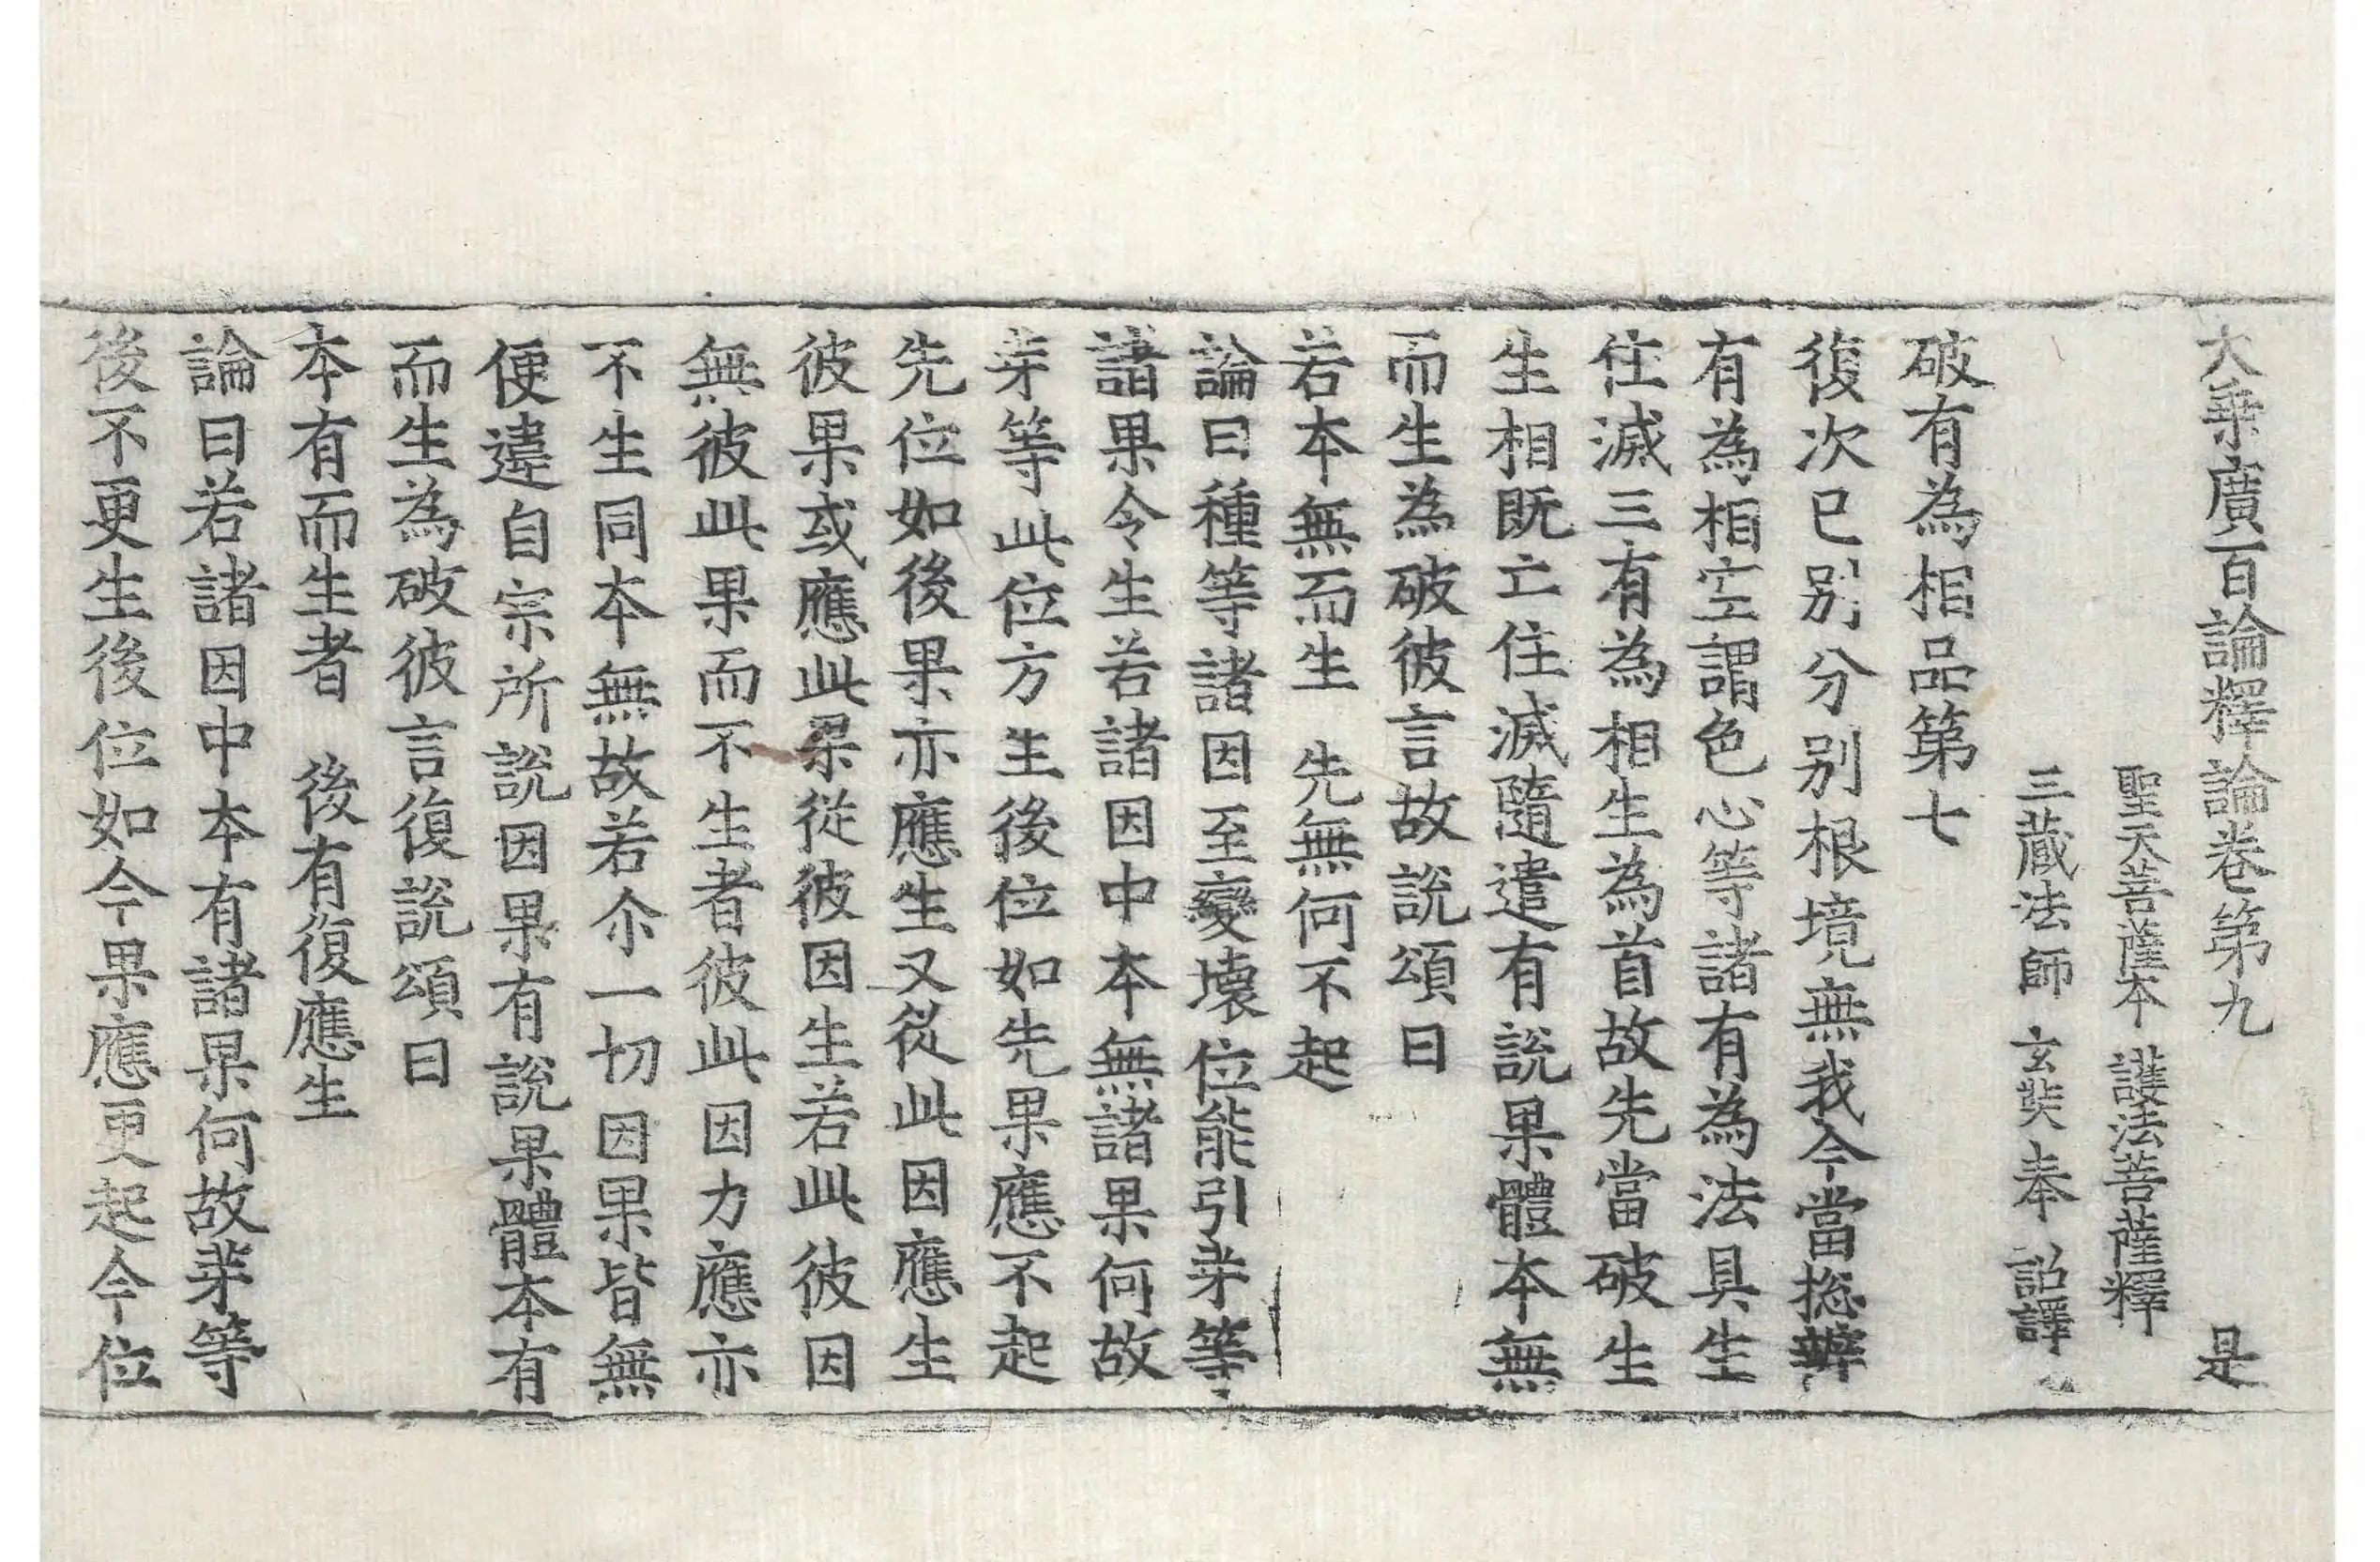 大乗廣百論釋論卷第九 是
聖天菩薩本 護法菩薩釋
三蔵法師 玄奘 奉 詔譯
破有為相品第七
復次已別分別根境無我今當捴辯
有為相空謂色心等諸有為法具生
住滅三有為相生為首故先當破生
生相既亡住滅隨遣有說果體本無
而生為破彼言故說頌曰
若本無而生 先無何不起
論曰種等諸因至變壞位能引芽等
諸果令生若諸因中本無諸果何故
芽等此位方生後位如先果應不起
先位如後果亦應生又從此因應生
彼果或應此果從彼因生若此彼因
無彼此果而不生者彼此因力應亦
不生同本無故若尒一切因果皆無
便違自宗所說因果有說果體本有
而生為破彼言復說頌曰
本有而生者 後有復應生
論曰若諸因中本有諸果何故芽等
後不更生後位如今果應更起今位